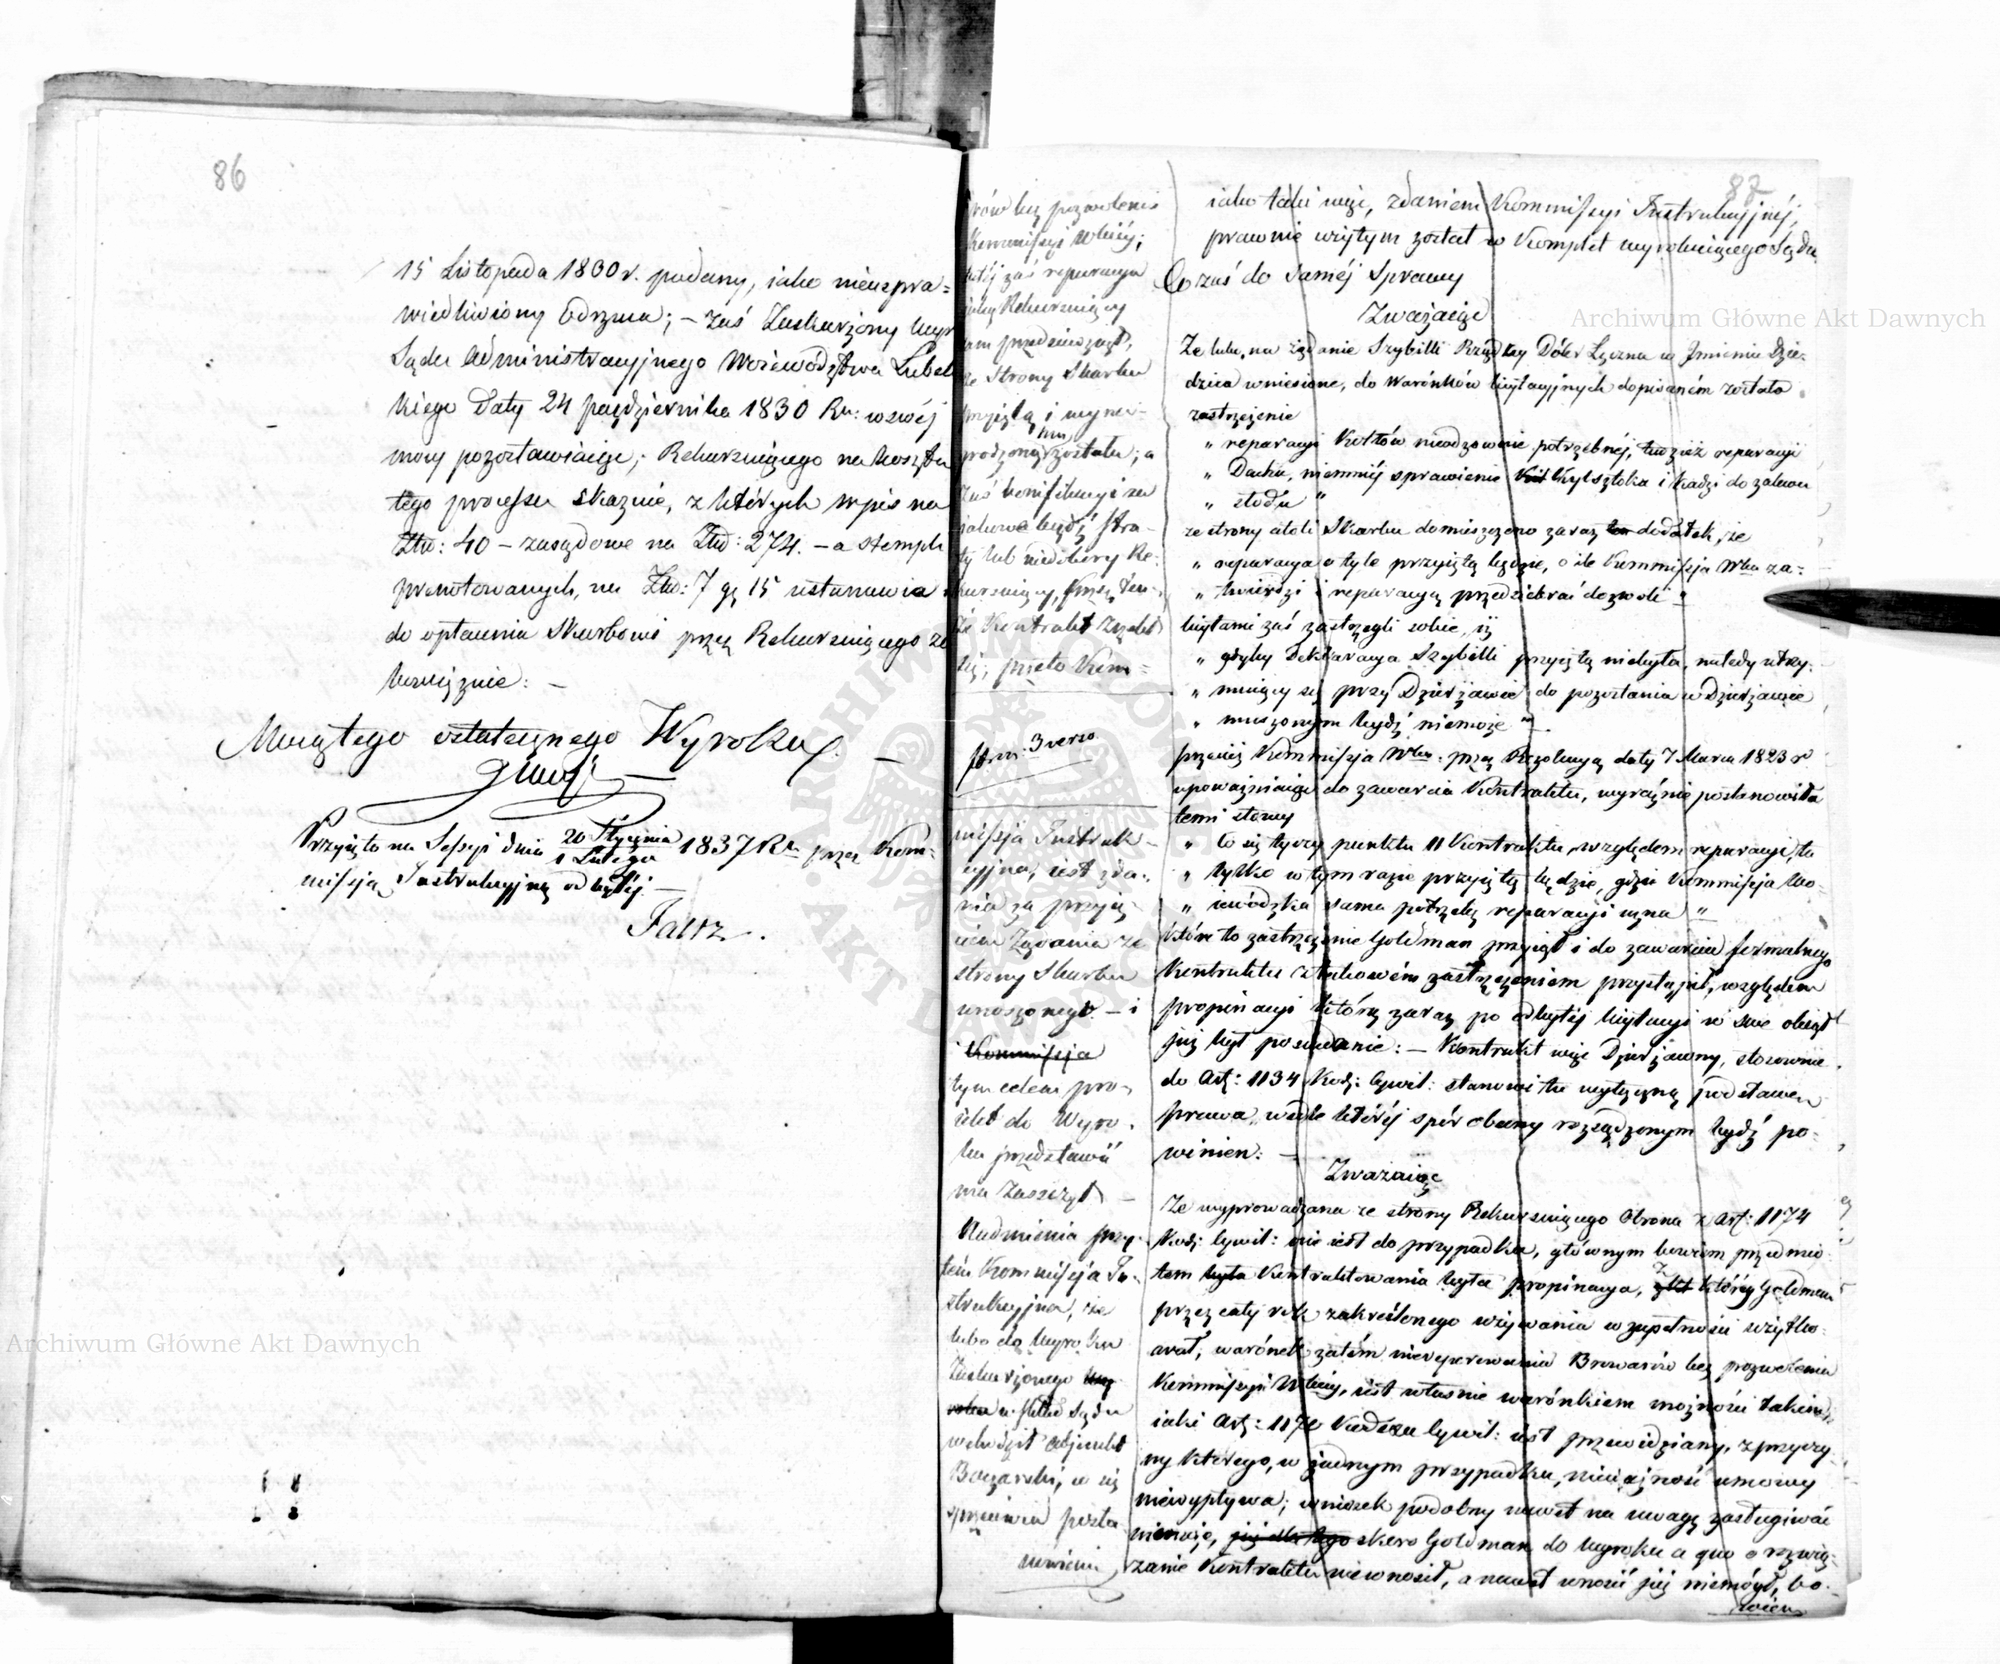 86
15 Listopada 1830 r. podany, iako nieuspra=
wiedliwiony Odrzuca; – zaś Zaskarżony wyr
Sądu Administracyjnego Województwa Lubel
kiego Daty 24 października 1830 Ru: w swéj
mocy pozostawiaiąc; Rekurruiącego na koszta
tego processu skazuie, z których wpis na
Złtt: 40 – zasądowe na Złtt: 274. – a stempl
prenotowanych, na Złtt: 7 gr 15 ustanawia i
do opłacenia Skarbowi przez Rekurruiącego zo
bowiązuie: –
Mocą tego ostatecznego Wyroku. –
Przyięto na Sessyi dnia 20 Stycznia / 1 Lutego 1837 Ru przez Kom=
missją Instrukcyjną odbytéj –
Faltz.
87
rów bez pozwolenia
Kommissyi Wdzkiéj;
téj zaś reparacya
iaką Rekurruiący
sam przedsięwziął,
ze Strony Skarbu
przyiętą i wyna=
grodzoną mu została; a
zaś bonifikacyi za
iakowe bądź stra=
ty lub niedobory Re=
kurruiący, przez ten=
że Kontrakt zrzekł
się; przeto Kom=
str: 3 verso
missja Instruk=
cyjna, iest zda=
nia za przyię=
ciem Żądania ze
strony Skarbu
wnoszonego. – i
Kommissja
tym celem pro=
iekt do Wyro=
ku przedstawić
ma zaszczyt –
Nadmienia przy=
tém Kommissja In=
strukcyjna, że
lubo do wyroku
Zaskarżonego wy
roku w skład Sądu
wchodził Adjunkt
Boczarski, w iej
przeciwia posta=
nowieniu
iako taki więc, zdaniem Kommissyi Instrukcyjnéj,
prawnie wziętym został w Komplet wyrokuiącego Sądu
Co zaś do saméj Sprawy
Zważaiąc
Że lubo, na żądanie Szybilli Rządcy Dóbr Łęczna w Imieniu Dzie=
dzica wniesione, do Warónków licytacyjnych dopisaném zostało
zastrzeżenie
„ reparacyi Kotłów nieodzownie potrzebnéj, tudzież reparacyi
„ Dachu, niemniéj sprawienia Kylsztoka i kadzi do zalewu
„ słodu „
ze strony atoli Skarbu domieszczono zaraz dodatek, że
„ reparacya o tyle przyiętą będzie, o ile Kommissja Wdka za=
„ twierdzi i reparacyą przedsiębrać dozwoli „
licytanci zaś zastrzegli sobie, iż
„ gdyby Deklaracya Szybilli przyiętą niebyła, natedy utrzy=
„ muiący się przy Dzierżawie do pozostania w Dzierżawie
„ muszonym bydź niemoże „
przecież Kommissja Wdka: przez Rezolucyą daty 7 Marca 1823 r
upoważniaiąc do zawarcia Kontraktu, wyraźnie postanowiła
temi słowy
„ Co się tyczy punktu 11 Kontraktu, względem reparacyi, ta
„ tylko w tym razie przyiętą będzie, gdzie Kommissja Wo=
„ iewódzka sama potrzebę reparacyi uzna „
które to zastrzeżenie Goldman przyiął i do zawarcia formalnego
Kontraktu z takowém zastrzeżeniem przystąpił, względem
propinacyi którą zaraz po odbytéj licytacyi w swe obiął
już był posiadanie: – Kontrakt więc Dzierżawny, stosownie
do Art: 1134 Kod: Cywil: stanowi tu wytyczną podstawę
prawa, wedle któréj spór obecny rozsądzonym bydź po=
winien: –
Zważaiąc
Że wyprowadzana ze strony Rekurruiącego Obrona z Art: 1174
Kod: Cywil: nie iest do przypadku, głównym bowiem przedmio=
tem była Kontraktowania była propinacya, z któréy Goldman
przez cały rok zakreślonego używania w zupełności użytko=
wał, warónek zatém niereparowania Browarów bez pozwolenia
Kommissyi Wdzkiéj, iest właśnie warónkiem możności takim,
iaki Art: 1170 Kodexu Cywil: iest przewidziany, z przyczy=
ny którego, w żadnym przypadku, nieważność umowy
niewypływa; wniosek podobny nawet na uwagę zasługiwać
niemoże, już dla tego skoro Goldman do wyroku a quo o rozwią=
zanie Kontraktu niewnosił, a nawet wnosić już niemógł, bo=
wiem
Archiwum Główne Akt Dawnych
Archiwum Główne Akt Dawnych
ARCHIWUM GŁÓWNE AKT DAWNYCH